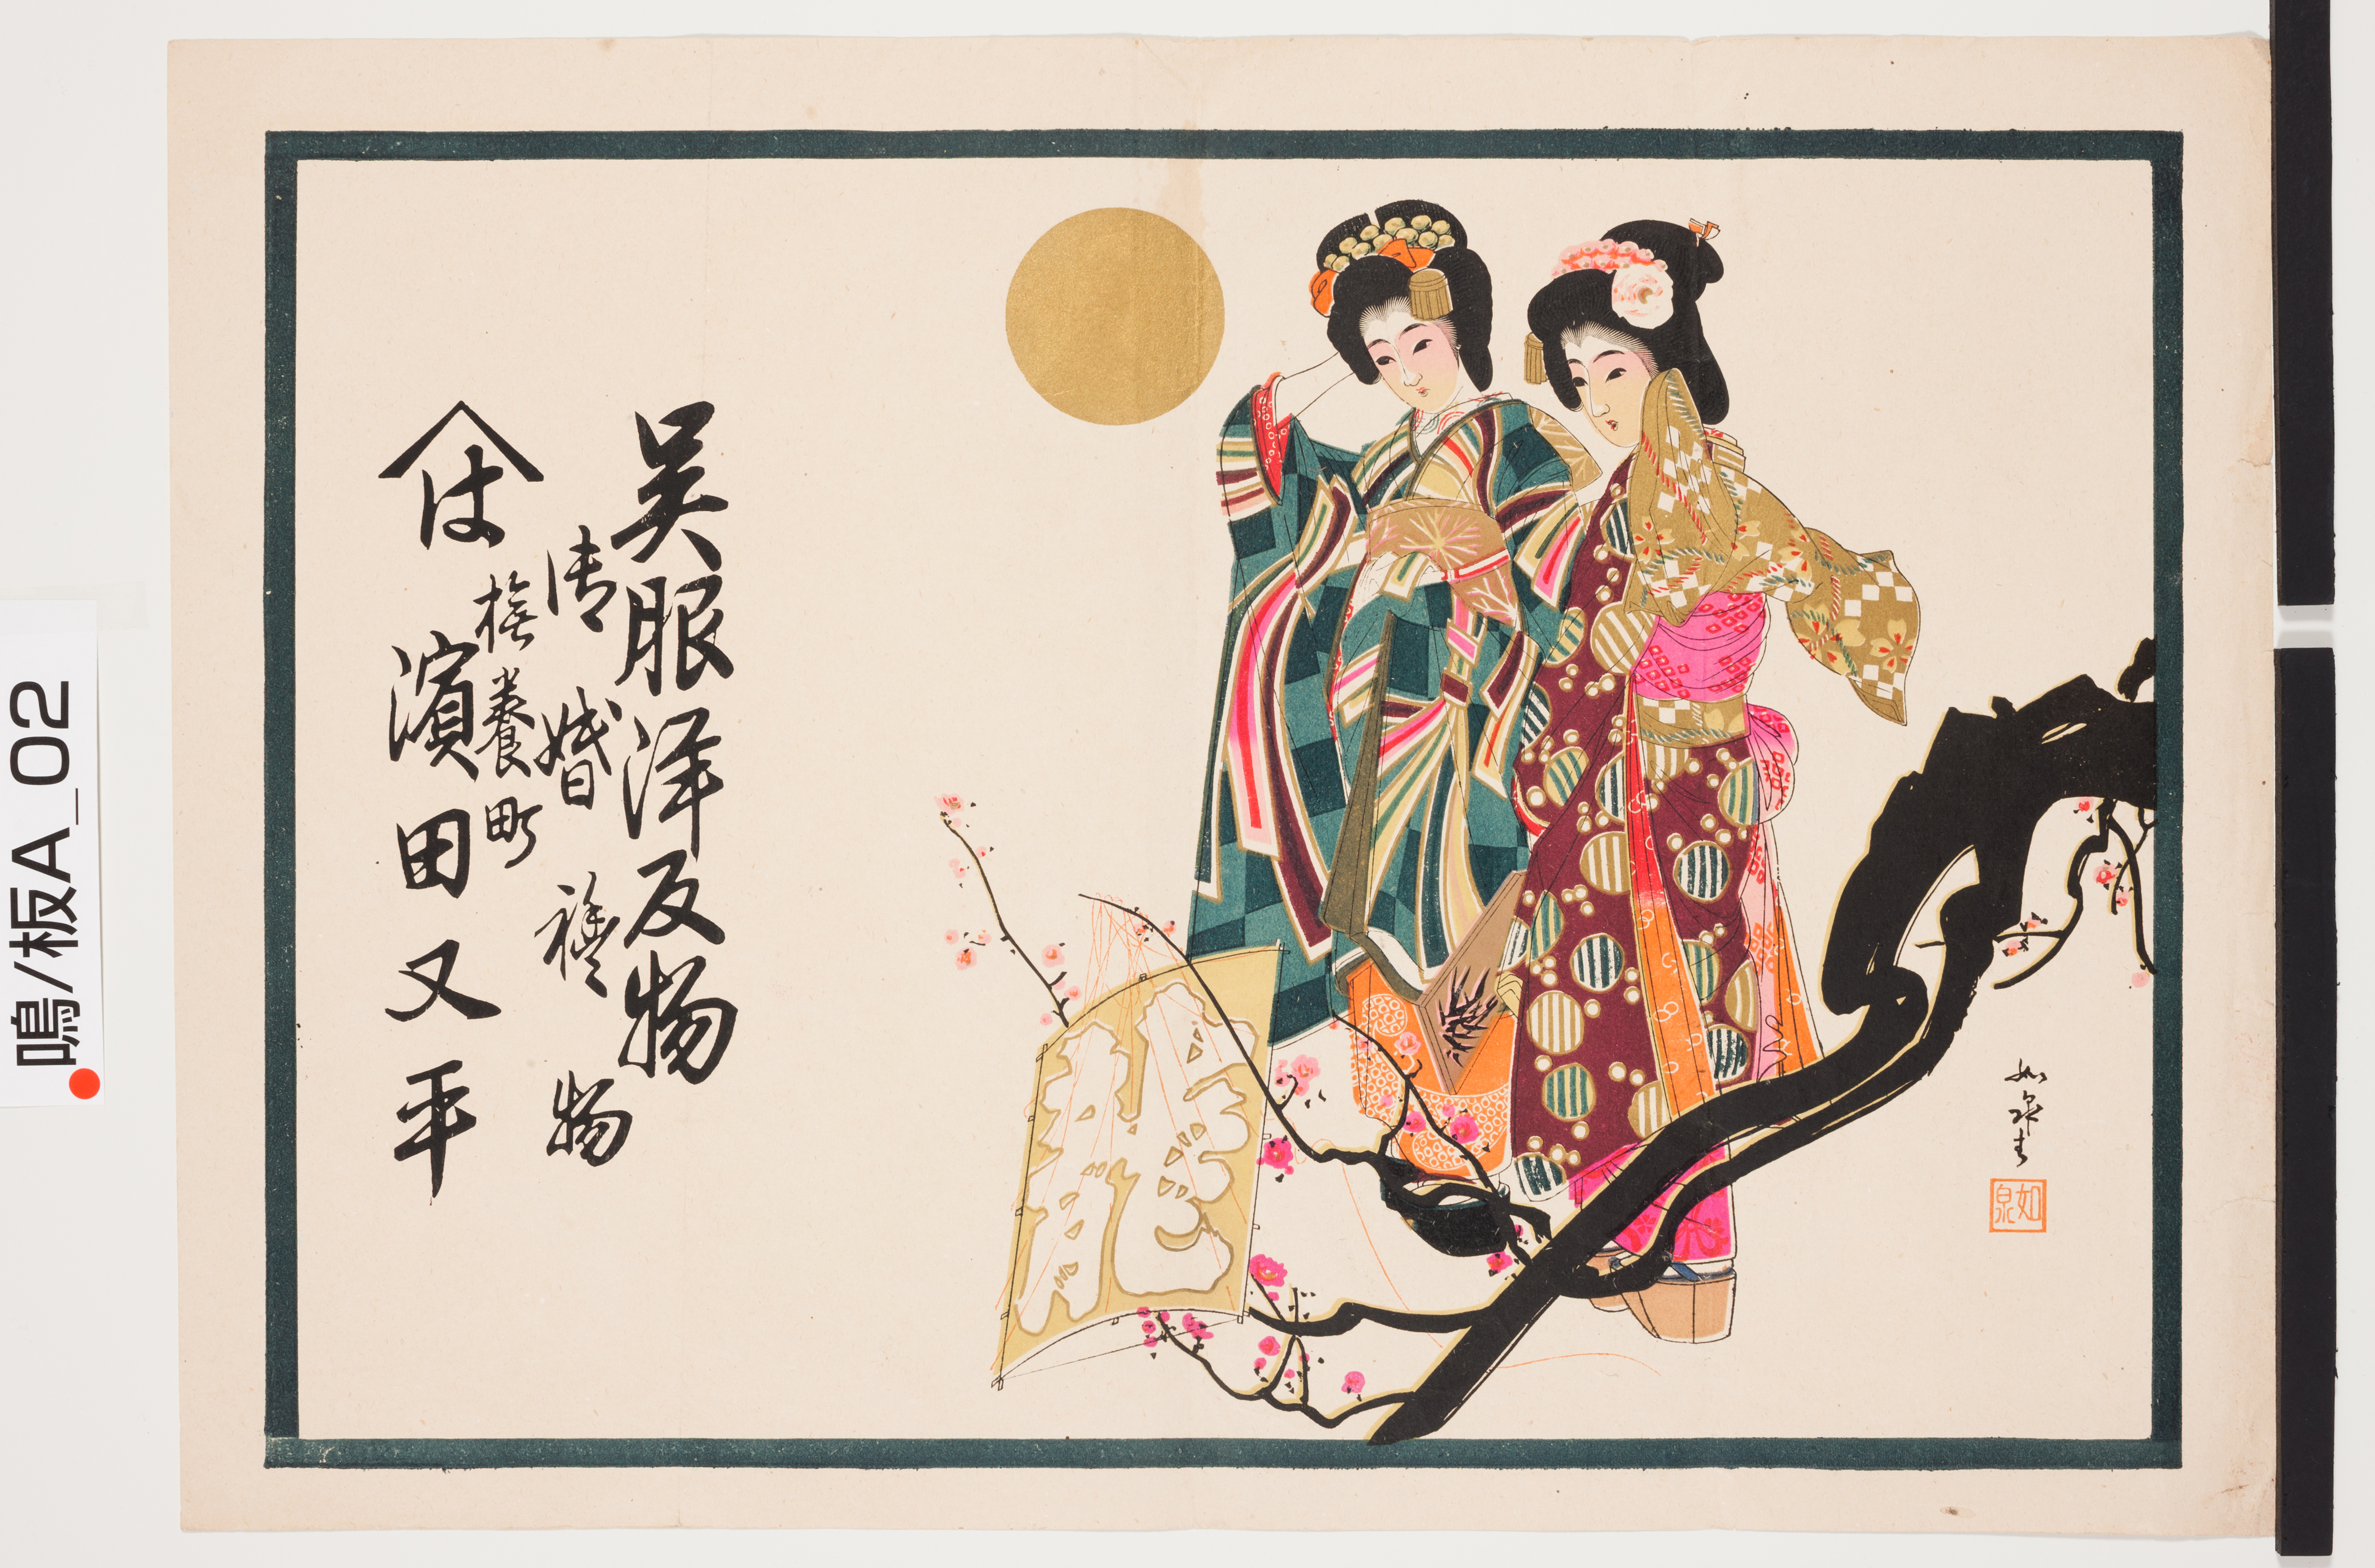 呉服洋反物
御婚禮物
撫養町
濱田又平
は
龍
如泉
如泉
鳴/板A_02